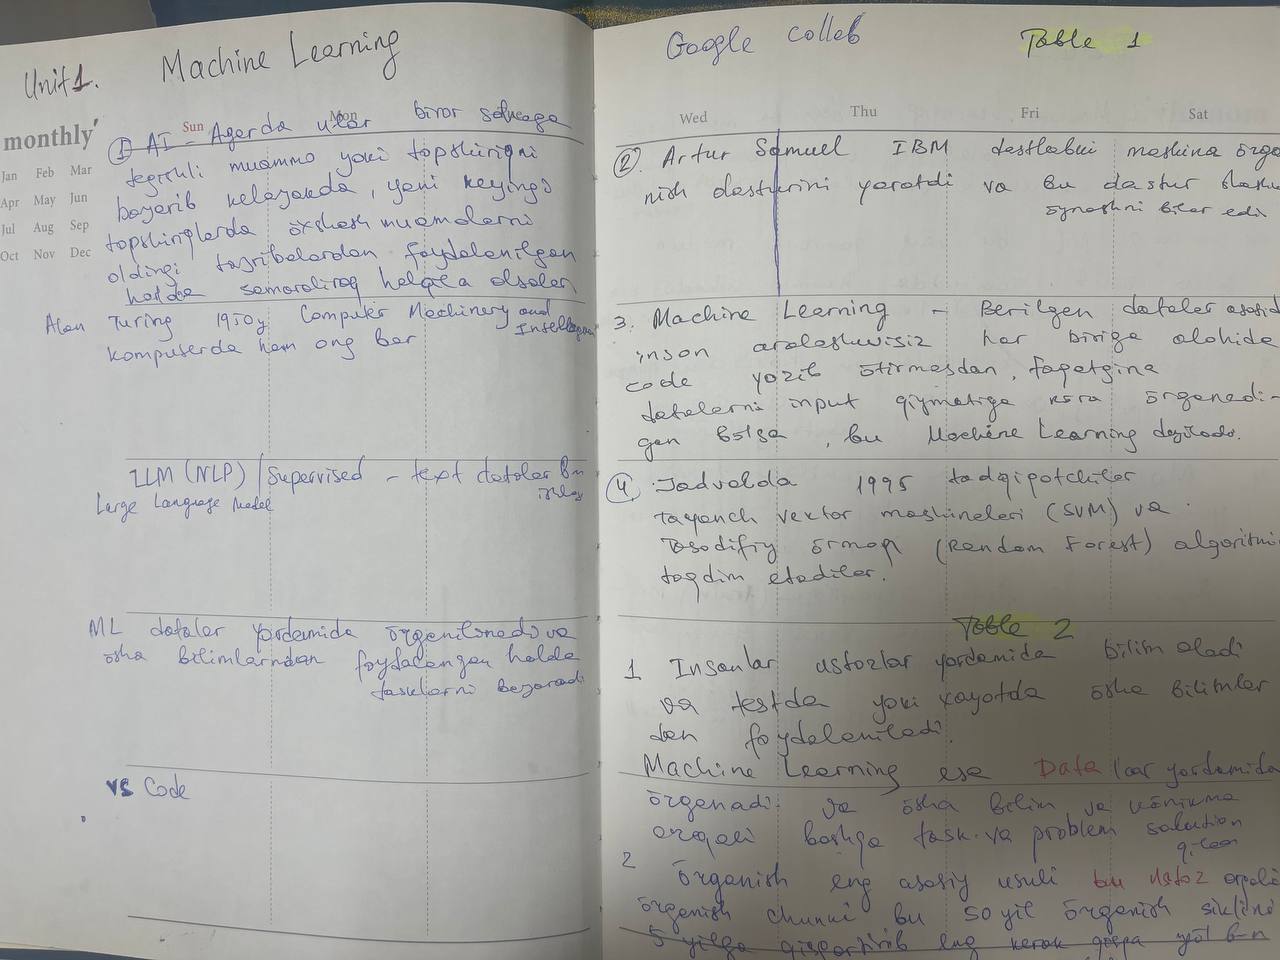 Unit 1. Machine Learning
monthly
Sun Mon
Jan Feb Mar
Apr May Jun
Jul Aug Sep
Oct Nov Dec
① AI - Agarda ular biror sohaga
tegishli muammo yoki topshiriqni
bajarib kelayotganda, yani keyingi
topshiriqlarda öxshash muamolarni
oldingi tajribalardan foydalanilgan
holda samaraliroq olsalar
Alan Turing 1950y Computer Machinery and
kompuserda ham ong bor
LLM (NLP) / Supervised - text datalar bn
Large Language Model
ML datalar yordamida
ösha bilimlarndan foydalangan holda
tasklarni bajaradi
VS Code
Google collab Table 1
Wed Thu Fri Sat
② Artur Samuel IBM dastlabki mashina örga
nish dasturini yaratdi va bu dastur
öynashni bilar edi
3. Machine Learning - Berilgan datalar asosid
inson aralashuvisiz har biriga alohida
code yozib ötirmasdan, faqatgina
datalarni input qiymatiga köra örganadi-
gan bölsa, bu Machine Learning deyiladi.
④ Jadvalda 1995 tadqiqotchilar
Tayanch vektor mashinalari (SVM) va
Tasodifiy örmon (Random Forest) algoritmi
taqdim etadilar.
Table 2
1 Insonlar ustozlar yordamida bilim oladi
va testda yoki xayotda ösha bilimlar
dan foydalaniladi.
Machine Learning esa Data lar yordamida
örganadi va ösha bilim va könikma
orqali boshqa task va problem solution
qiladi
2 Örganish eng asosiy usuli bu ustoz orqali
örganish chunki bu 50 yil örganish siklini
5 yilga qisqartirib eng kerak yöl b-n